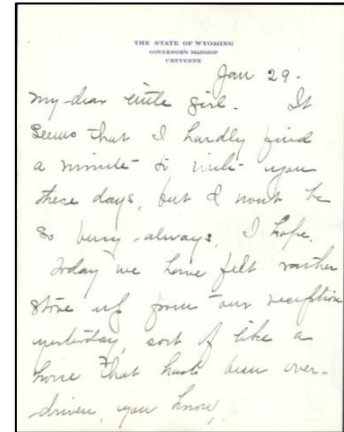 THE STATE OF WYOMING
GOVERNOR'S MANSION
CHEYENNE
Jan 29.
My dear little girl. It
seems that I hardly find
a minute to write you
these days, but I wont be
so busy always, I hope.
Today we have felt rather
stove up from our reception
yesterday, sort of like a
horse that has been over-
driven, you know,